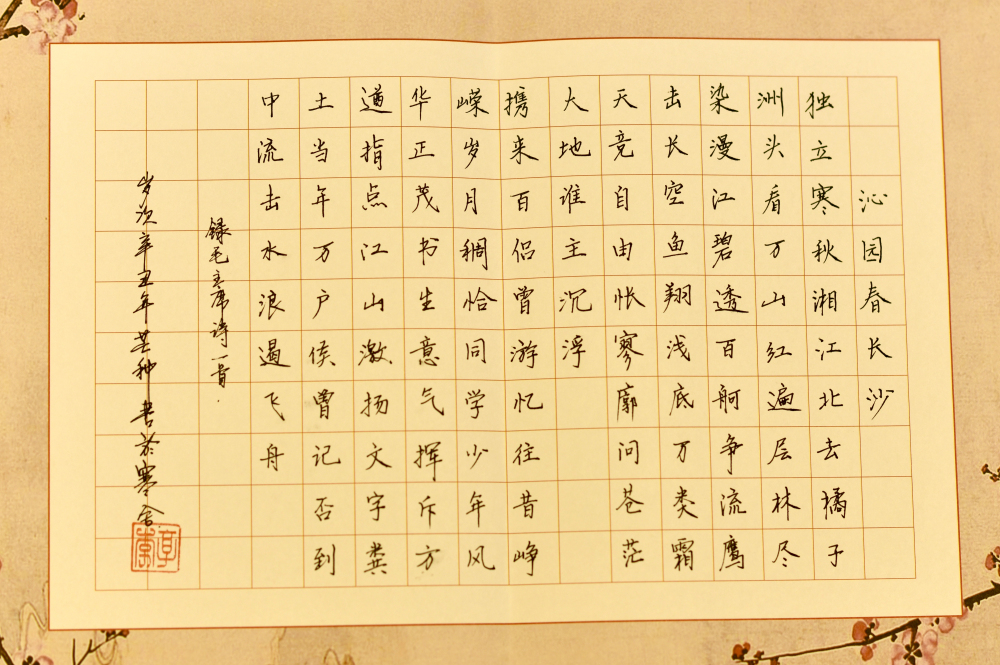 沁园春长沙
独立寒秋湘江北去橘子
洲头看万山红遍层林尽
染漫江碧透百舸争流鹰
击长空鱼翔浅底万类霜
天竞自由怅寥廓问苍茫
大地谁主沉浮
携来百侣曾游忆往昔峥
嵘岁月稠恰同学少年风
华正茂书生意气挥斥方
遒指点江山激扬文字粪
土当年万户侯曾记否到
中流击水浪遏飞舟
録毛主席诗一首.
岁次辛丑年芒种书於寒舍